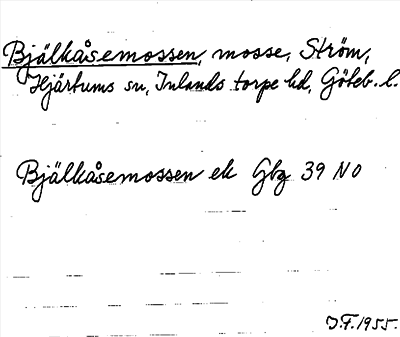 Bjälkåsemossen, mosse, Ström,
Hjärtums sn, Inlands torpe hd, Göteb. l.
Bjälkåsemossen ek Gbg 39 NO
J.F. 1955.